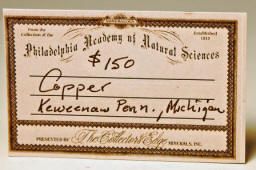 From the Collection of the
Established 1812
Philadelphia Academy of Natural Sciences
$150
Copper
Keweenaw Penn., Michigan
PRESENTED BY The Collector's Edge MINERALS, INC.